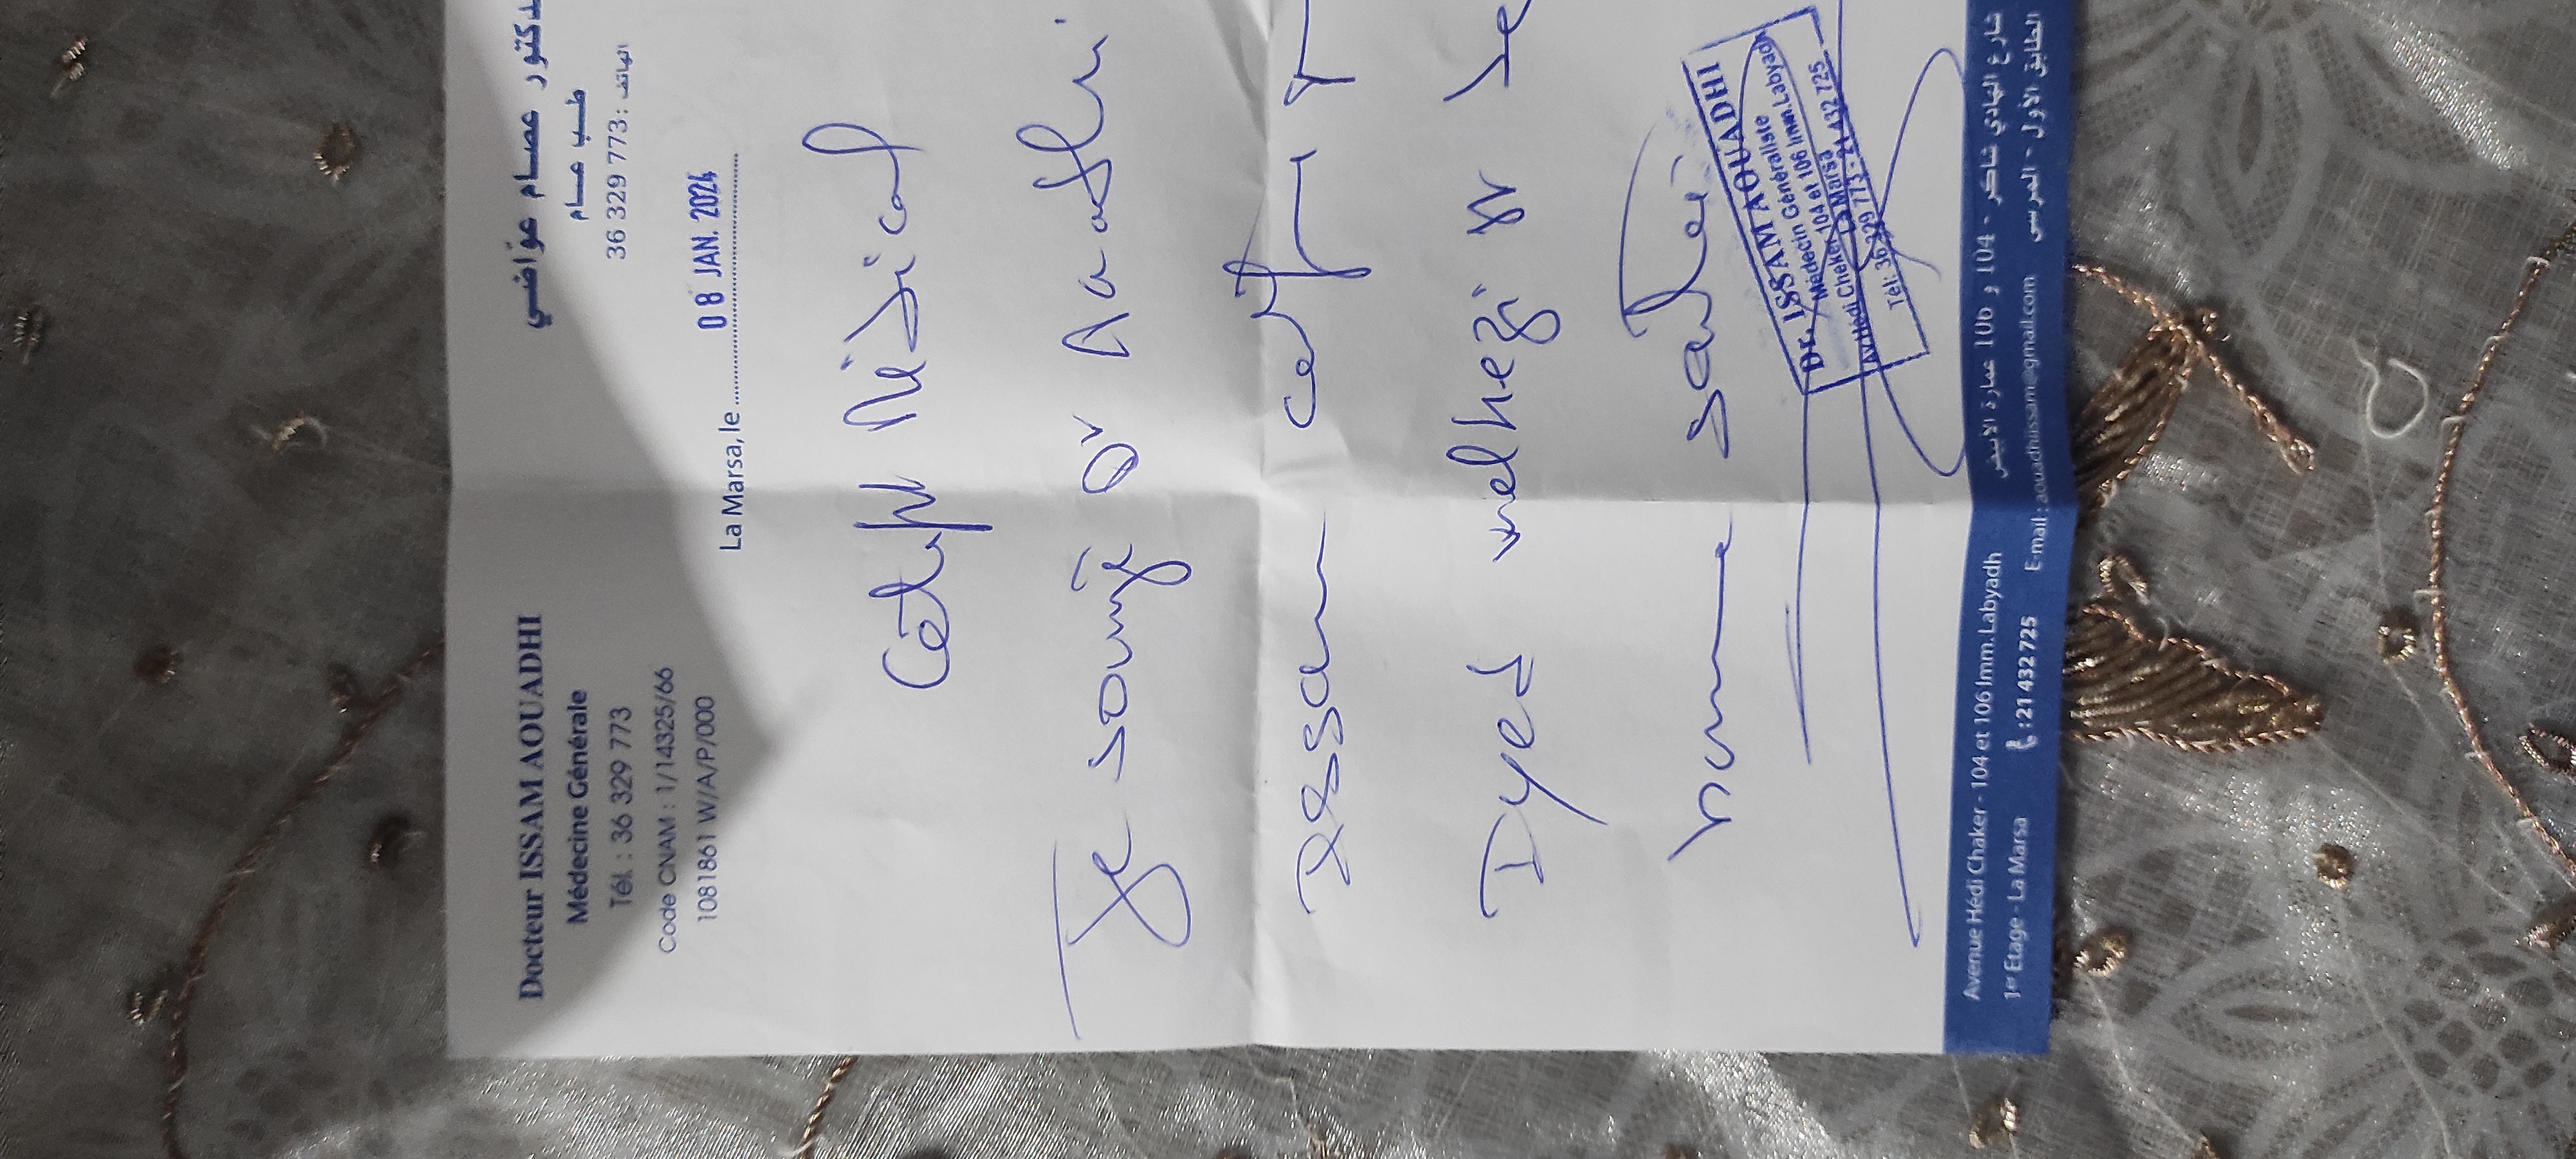 Docteur ISSAM AOUADHI
Médecine Générale
Tél. : 36 329 773
Code CNAM : 1/14325/66
1081861 W/A/P/000
دكتور عصام عوّاضي
طب عام
الهاتف : 36 329 773
La Marsa, le 08 JAN. 2024
Certif Médical
Je soussigné Dr Aouadhi
Issam certif
Dyed
bonne santé
Dr. ISSAM AOUADHI
Médecin Généraliste
Av. Hédi Cheker 104 et 106 Imm. Labyadh
La Marsa
Tél: 36 329 773 - 21 432 725
Avenue Hédi Chaker - 104 et 106 Imm. Labyadh
1er Etage - La Marsa : 21 432 725 E-mail : aouadhiissam@gmail.com
شارع الهادي شاكر - 104 و 106 عمارة الأبيض
الطابق الأول - المرسى